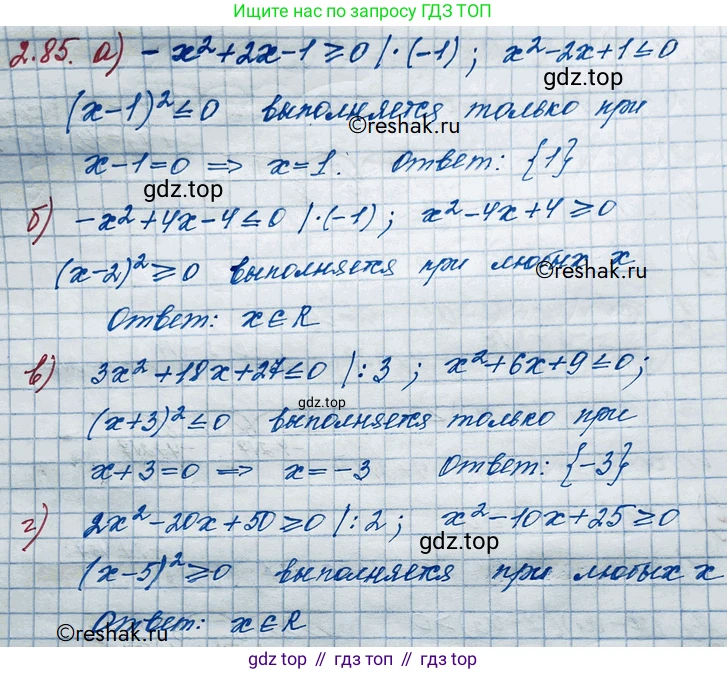 Ищите нас по запросу ГДЗ ТОП
2.85. а) -x²+2x-1≥0 |·(-1); x²-2x+1≤0
gdz.top
(x-1)²≤0 выполняется только при
©reshak.ru
x-1=0 => x=1. Ответ: {1}
gdz.top
gdz.top
б) -x²+4x-4≤0 |·(-1); x²-4x+4≥0
(x-2)²≥0 выполняется при любых x
©reshak.ru
Ответ: x∈R
в) 3x²+18x+27≤0 |:3; x²+6x+9≤0;
gdz.top
(x+3)²≤0 выполняется только при
x+3=0 => x=-3 Ответ: {-3}
г) 2x²-20x+50≥0 |:2; x²-10x+25≥0
gdz.top
(x-5)²≥0 выполняется при любых x
Ответ: x∈R
©reshak.ru
gdz top // гдз топ // gdz.top